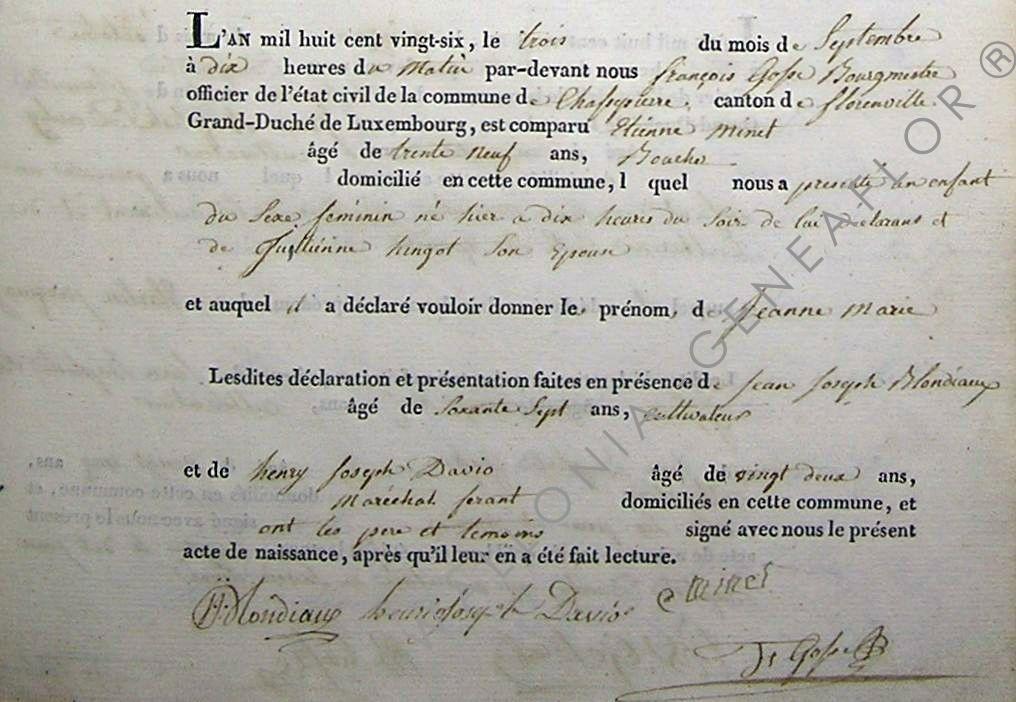 L'AN mil huit cent vingt-six, le trois du mois de Septembre
à dix heures du Matin par-devant nous françois Gosse Bourgmestre
officier de l'état civil de la commune de Chassepierre, canton de florenville
Grand-Duché de Luxembourg, est comparu Etienne Minet
âgé de trente neuf ans, Boucher
domicilié en cette commune, l quel nous a presenté un enfant
du Sexe feminin né hier a dix heures du Soir de lui declarant et
de hingot Son Epouse
et auquel il a déclaré vouloir donner le prénom de Jeanne Marie
Lesdites déclaration et présentation faites en présence de Jean Joseph Blondiaux
âgé de Soxante Sept ans, cultivateur
et de henry Joseph Davio âgé de vingt deux ans,
Maréchal ferant domiciliés en cette commune, et
ont les pere et temoins signé avec nous le présent
acte de naissance, après qu'il leur en a été fait lecture.
Blondiaux henri joseph Davio e minet
Gosse
GENEALOR ®